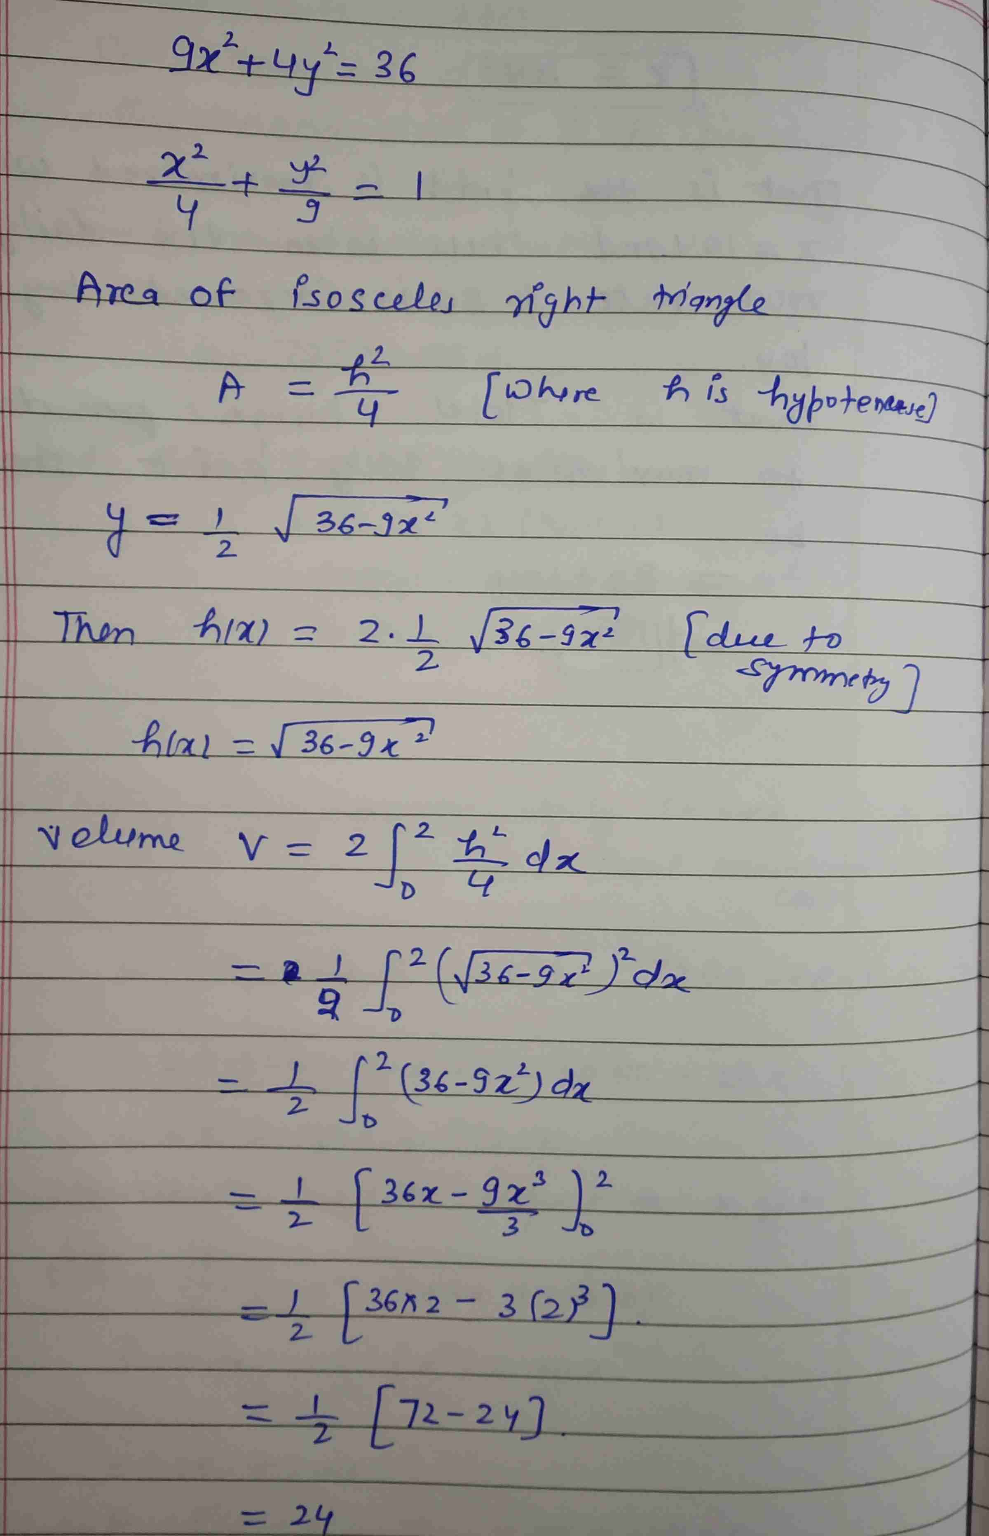 9x² + 4y² = 36
x²/4 + y²/9 = 1
Area of isosceles right triangle
A = h²/4 [where h is hypotenuse]
y = 1/2 √(36-9x²)
Then h(x) = 2·1/2 √(36-9x²) [due to
symmetry]
h(x) = √(36-9x²)
volume V = 2 ∫₀² h²/4 dx
= 1/2 ∫₀² (√(36-9x²))² dx
= 1/2 ∫₀² (36-9x²) dx
= 1/2 [36x - 9x³/3]₀²
= 1/2 [36×2 - 3(2)³].
= 1/2 [72-24].
= 24